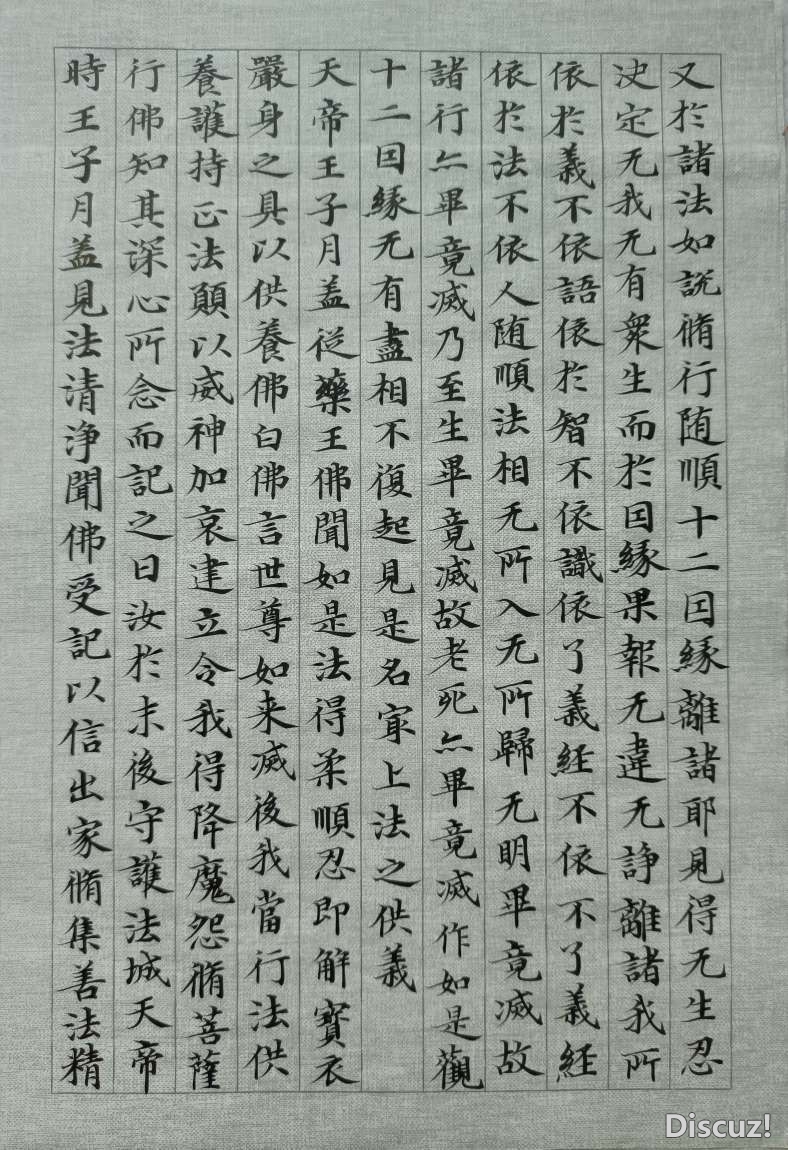 又於諸法如説脩行随順十二因縁離諸耶見得无生忍
决定无我无有衆生而於因縁果報无違无諍離諸我所
依於義不依語依於智不依識依了義経不依不了義経
依於法不依人随順法相无所入无所歸无明畢竟滅故
諸行亦畢竟滅乃至生畢竟滅故老死亦畢竟滅作如是觀
十二因縁无有盡相不復起見是名㝡上法之供義
天帝王子月盖従藥王佛聞如是法得柔順忍即解寳衣
嚴身之具以供養佛白佛言世尊如来滅後我當行法供
養護持正法願以威神加哀建立令我得降魔怨脩菩薩
行佛知其深心所念而記之曰汝於末後守護法城天帝
時王子月盖見法清浄聞佛受記以信出家脩集善法精
Discuz!